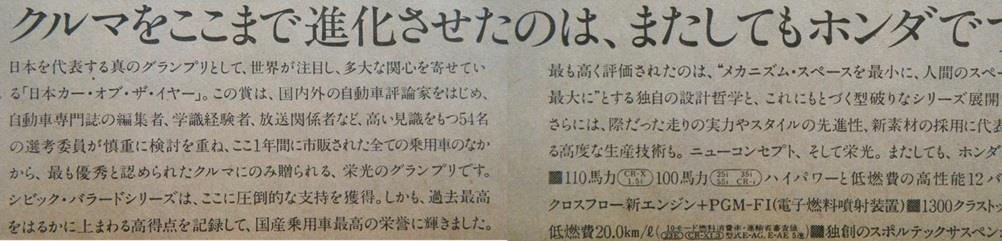 クルマをここまで進化させたのは、またしてもホンダで
日本を代表する真のグランプリとして、世界が注目し、多大な関心を寄せてい
る「日本カー・オブ・ザ・イヤー」。この賞は、国内外の自動車評論家をはじめ、
自動車専門誌の編集者、学識経験者、放送関係者など、高い見識をもつ54名
の選考委員が慎重に検討を重ね、ここ1年間に市販された全ての乗用車のなか
から、最も優秀と認められたクルマにのみ贈られる、栄光のグランプリです。
シビック・バラードシリーズは、ここに圧倒的な支持を獲得。しかも、過去最高
をはるかに上まわる高得点を記録して、国産乗用車最高の栄誉に輝きました。
最も高く評価されたのは、“メカニズム・スペースを最小に、人間のスペー
最大に”とする独自の設計哲学と、これにもとづく型破りなシリーズ展開
さらには、際だった走りの実力やスタイルの先進性、新素材の採用に代表
る高度な生産技術も。ニューコンセプト、そして栄光。またしても、ホンダ
■110馬力 CR-X 1.5i 100馬力 25i 35i 55i CR-i ハイパワーと低燃費の高性能12バ
クロスフロー新エンジン+PGM-FI(電子燃料噴射装置)■1300クラストッ
低燃費20.0km/ℓ 10モード燃料消費率・運輸省審査値 23E CR-X1.3 型式E-AG、E-AE 5速 ■独創のスポルテックサスペン